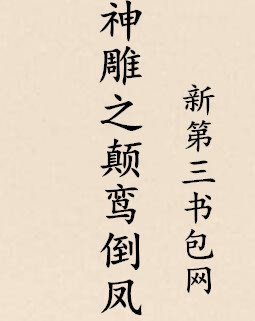 神雕之颠鸾倒凤
新第三书包网